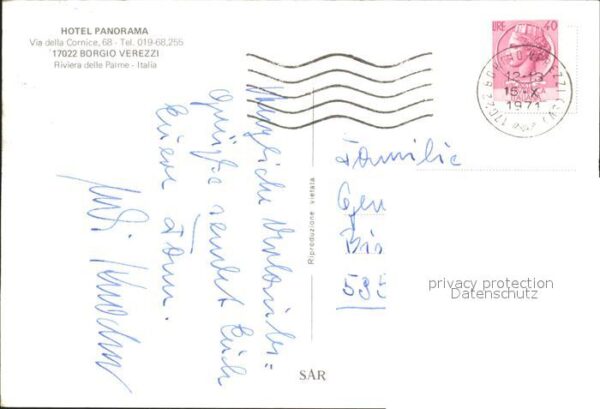 HOTEL PANORAMA
Via della Cornice, 68 - Tel. 019-68,255
17022 BORGIO VEREZZI
Riviera delle Palme - Italia
LIRE 40
13-13
15-X
1971
Herzliche Urlaubs=
grüße sendet Euch
Eure Fam.
Familie
Riproduzione vietata
SAR
privacy protection
Datenschutz